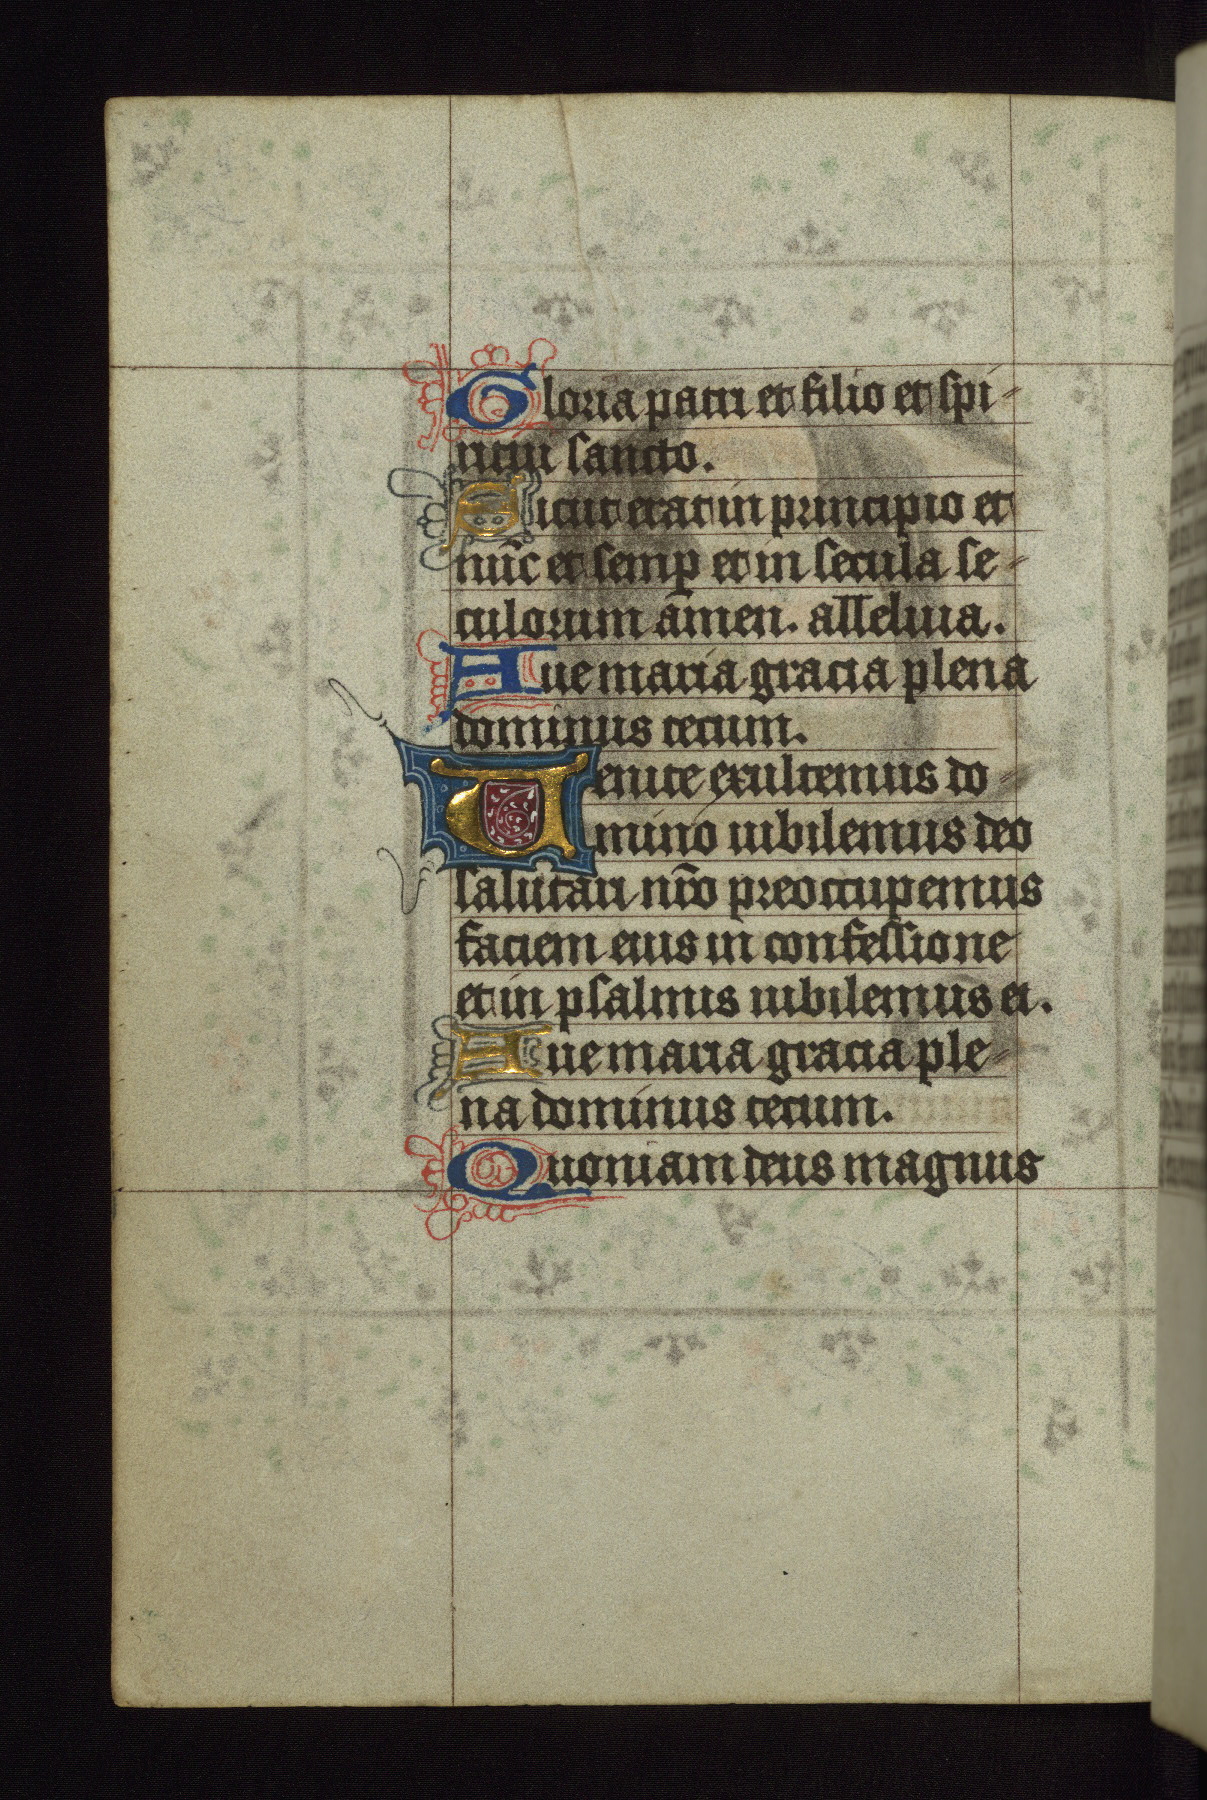 Gloria patri et filio et spi-
ritui sancto.
Sicut erat in principio et
nūc et semꝑ et in secula se-
culorum amen. alleluia.
Aue maria gracia plena
dominus tecum.
Uenite exultemus do-
mino iubilemus deo
salutari nr̄o preoccupemus
faciem eius in confessione
et in psalmis iubilemus ei.
Aue maria gracia ple-
na dominus tecum.
Quoniam deus magnus